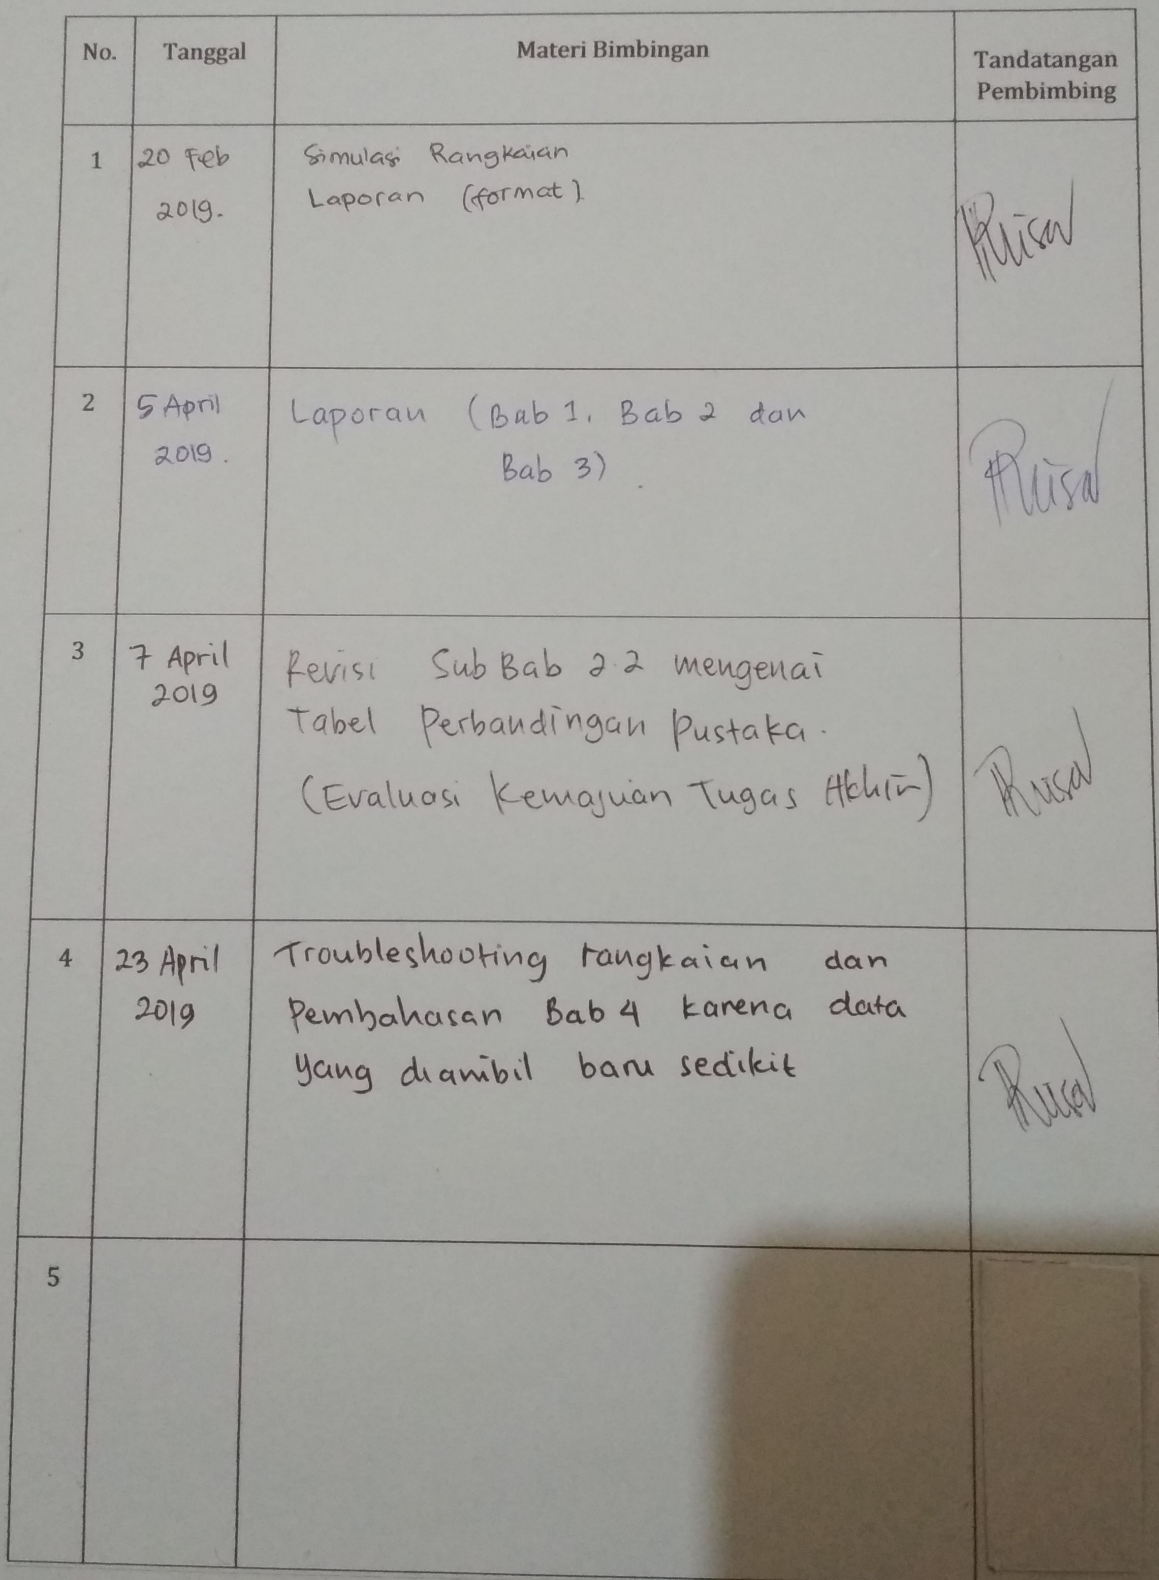 No. Tanggal Materi Bimbingan Tandatangan
Pembimbing
1 20 Feb Simulasi Rangkaian
2019. Laporan (format)
2 5 April Laporan (Bab 1, Bab 2 dan
2019. Bab 3).
3 7 April Revisi Sub Bab 2.2 mengenai
2019 Tabel Perbandingan Pustaka.
(Evaluasi Kemajuan Tugas Akhir)
4 23 April Troubleshooting rangkaian dan
2019 Pembahasan Bab 4 karena data
yang diambil baru sedikit
5